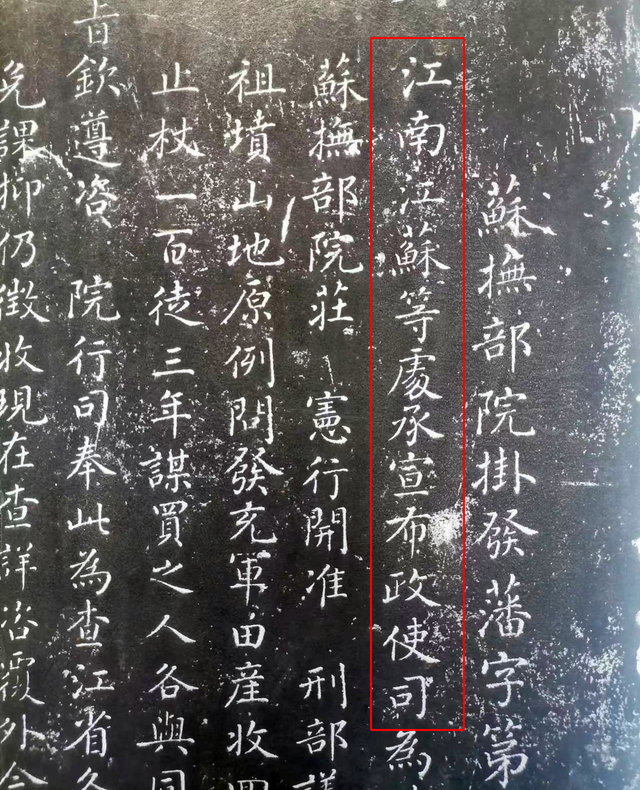 蘇撫部院掛發藩字第
江南江蘇等處承宣布政使司為
蘇撫部院莊 憲行開准 刑部議
祖墳山地原例問發充軍田產收
止杖一百徒三年謀買之人各與同
旨欽遵咨 院行司奉此為查江省各
免課抑仍徵收現在查詳咨覆外合